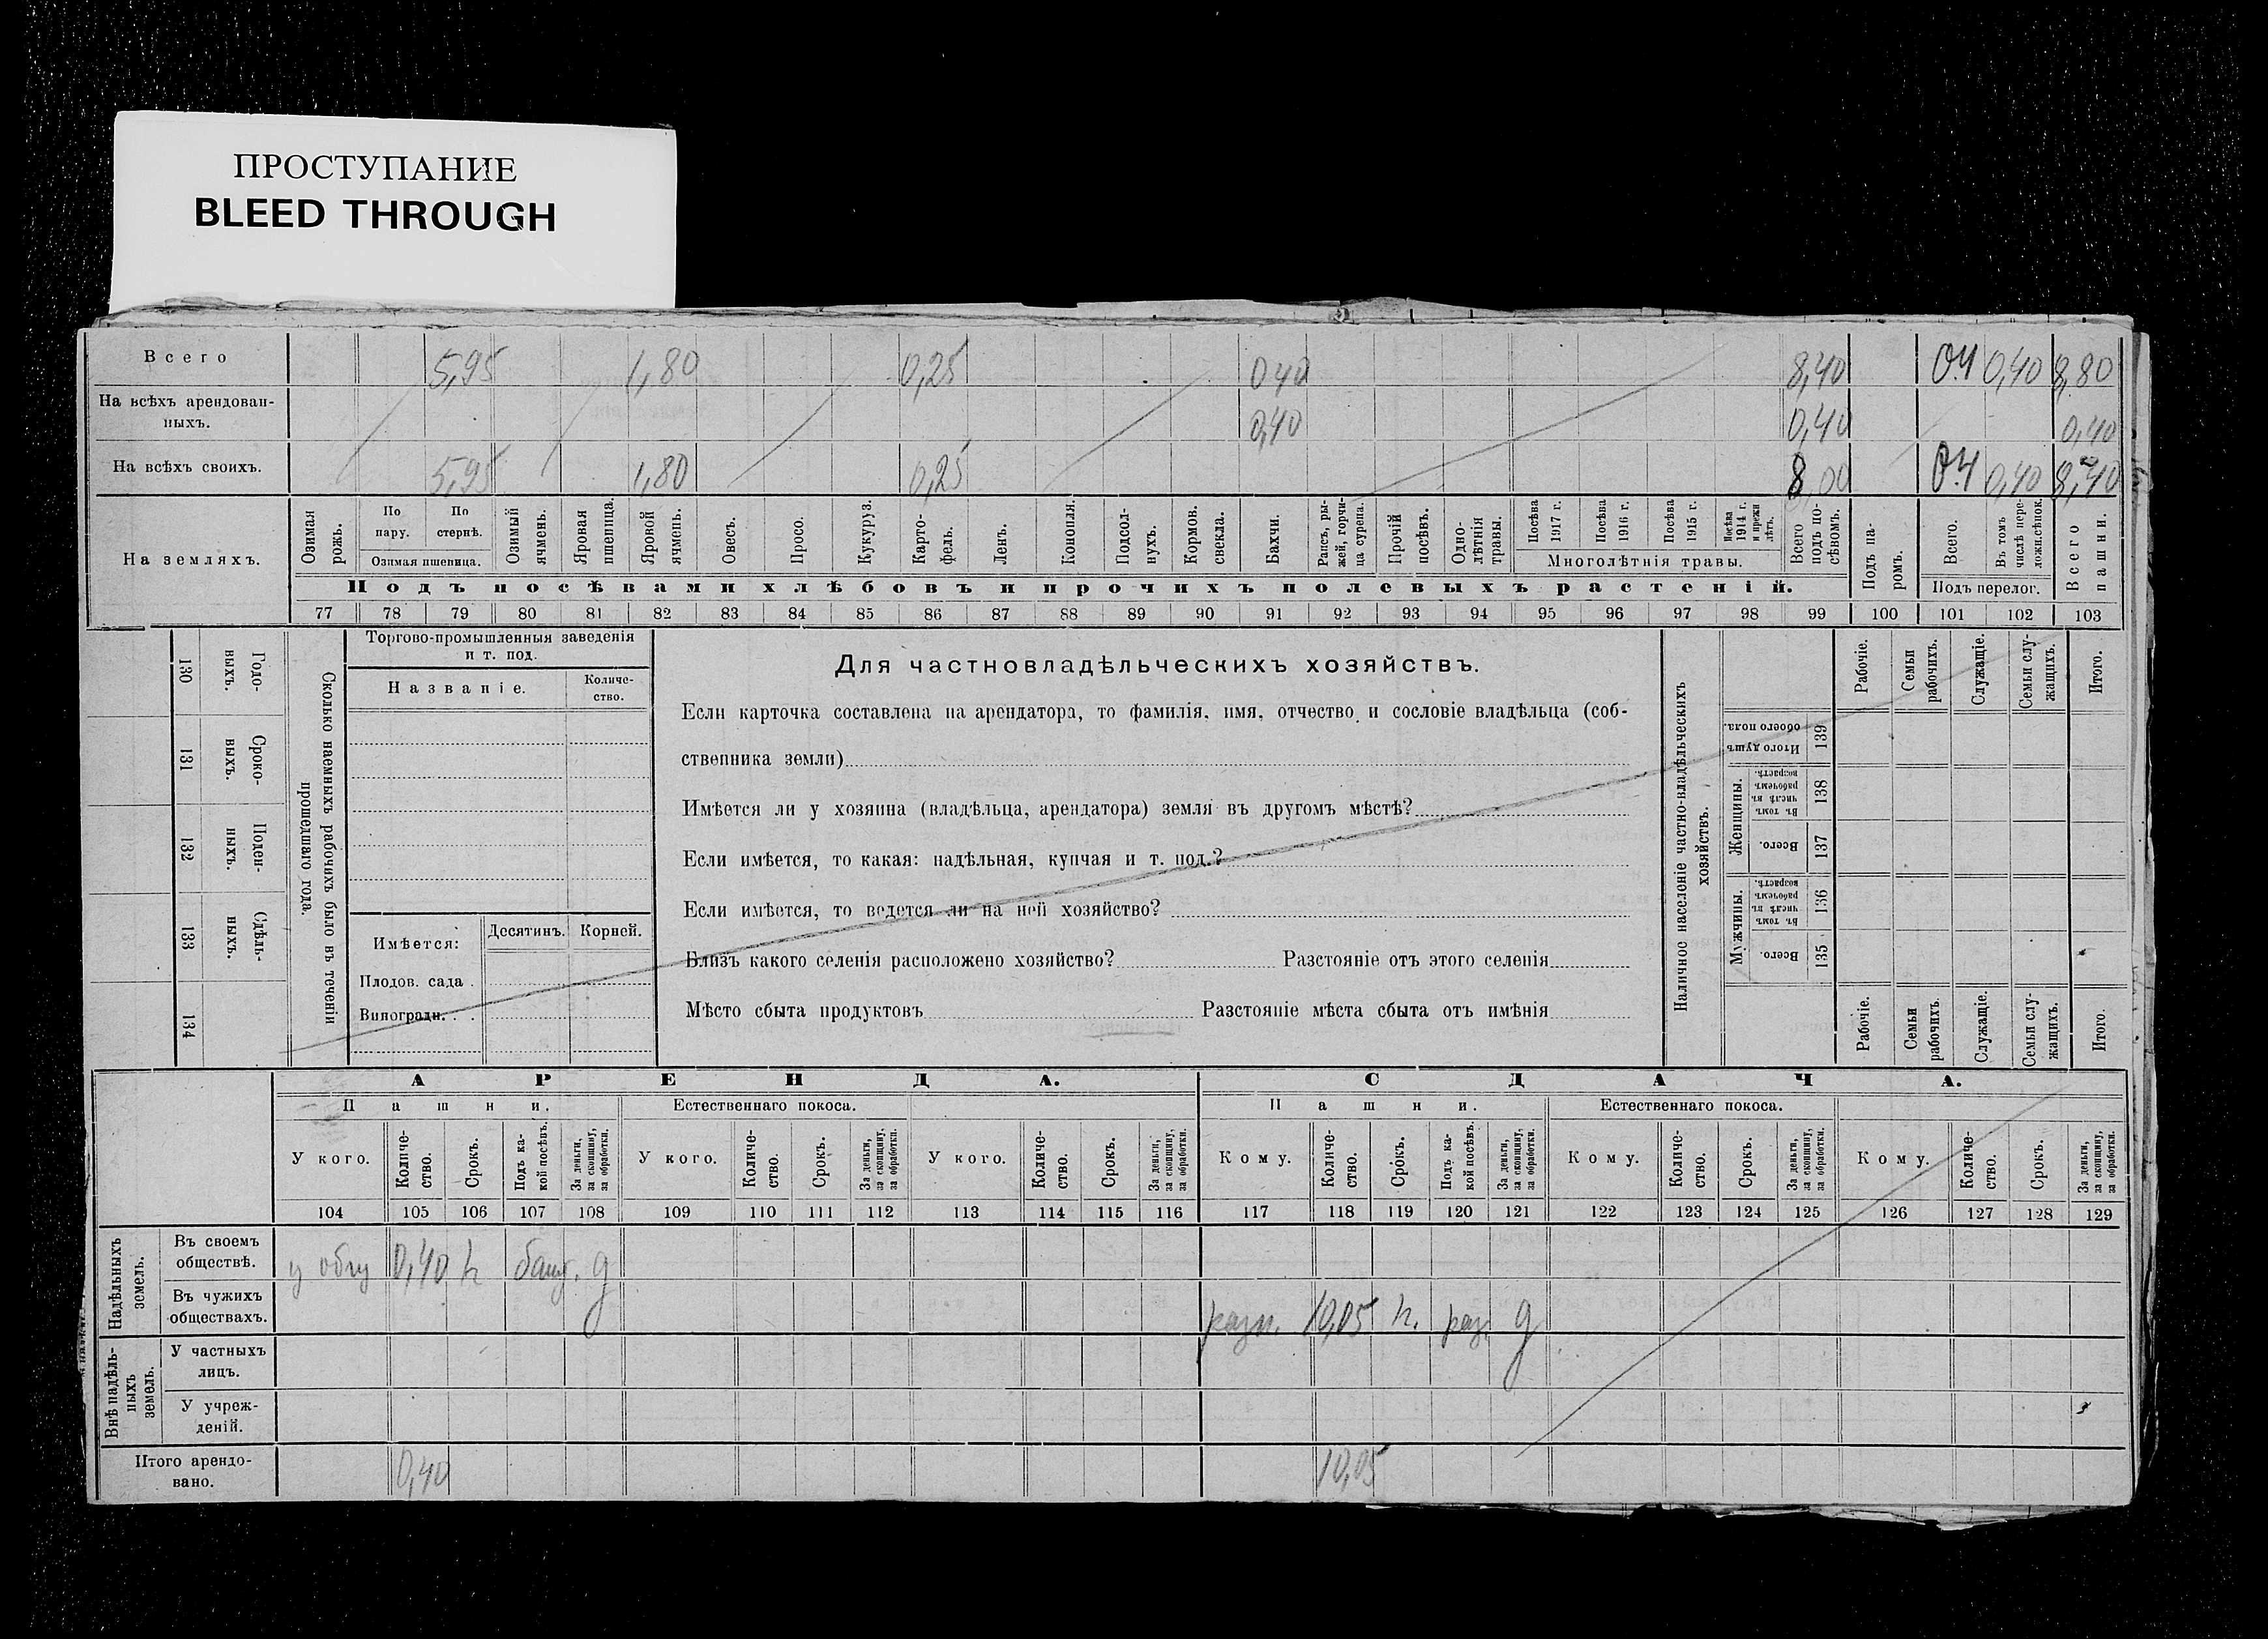 ПРОСТУПАНИЕ
BLEED THROUGH
Всего 5,95 1,80 0,25 0 40 8,40 0.4 0,40 8,80
На всѣхъ арендован-
ныхъ. 0,40 0,40 0,40
На всѣхъ своихъ. 5,95 1,80 0,25 8,00 0.4 0,40 8,40
На земляхъ.
Озимая рожь.
По пару.
По стернѣ.
Озимая пшеница.
Озимый ячмень.
Яровая пшеница.
Яровой ячмень.
Овесъ.
Просо.
Кукуруз.
Карто-
фель.
Ленъ.
Конопля.
Подсол-
нухъ.
Кормов. свекла.
Бахчи.
Рапсъ, ры-
жей, горчи-
ца сурепа.
Прочій посѣвъ.
Одно-
лѣтнія травы.
Посѣва 1917 г.
Посѣва 1916 г.
Посѣва 1915 г.
Посѣва 1914 г. и прежн лѣтъ.
Многолѣтнія травы.
Всего подъ по-
сѣвомъ.
Подъ па-
ромъ.
Всего.
Въ томъ числѣ пере-
ложн.сѣнок.
Подъ перелог.
Всего пашни.
Подъ посѣвами хлѣбовъ и прочихъ полевыхъ растеній.
77 78 79 80 81 82 83 84 85 86 87 88 89 90 91 92 93 94 95 96 97 98 99 100 101 102 103
Годо-
выхъ.
130
Сроко-
выхъ.
131
Поден-
ныхъ.
132
Сдѣль-
ныхъ.
133
134
Сколько наемныхъ рабочихъ было въ теченіи
прошедшаго года.
Торгово-промышленныя заведенія
и т. под.
Названіе.
Количе-
ство.
Имѣется:
Десятинъ.
Корней.
Плодов. сада .
Виноградн. . .
Для частновладѣльческихъ хозяйствъ.
Если карточка составлена на арендатора, то фамилія, имя, отчество и сословіе владѣльца (соб-
ственника земли)
Имѣется ли у хозяина (владѣльца, арендатора) земля въ другомъ мѣстѣ?
Если имѣется, то какая: надѣльная, купчая и т. под.?
Если имѣется, то ведется ли на ней хозяйство?
Близъ какого селенія расположено хозяйство? Разстояніе отъ этого селенія
Мѣсто сбыта продуктовъ Разстояніе мѣста сбыта отъ имѣнія
Наличное населеніе частно-владѣльческихъ
хозяйствъ.
Рабочіе.
Семьи рабочихъ.
Служащіе.
Семьи слу-
жащихъ.
Итого.
Итого душъ обоего пола.
139
Женщины.
Въ томъ числѣ въ рабочемъ возрастѣ.
138
Всего.
137
Мужчины.
Въ томъ числѣ въ рабочемъ возрастѣ.
136
Всего.
135
Рабочіе.
Семьи рабочихъ.
Служащіе.
Семьи слу-
жащихъ.
Итого.
АРЕНДА. СДАЧА.
Пашни. Естественнаго покоса. Пашни. Естественнаго покоса.
У кого.
Количе-
ство.
Срокъ.
Подъ ка-
кой посѣвъ.
За деньги, за скопщину, за обработки.
У кого.
Количе-
ство.
Срокъ.
За деньги, за скопщину, за обработки.
У кого.
Количе-
ство.
Срокъ.
За деньги, за скопщину, за обработки.
Кому.
Количе-
ство.
Срокъ.
Подъ ка-
кой посѣвъ.
За деньги, за скопщину, за обработки.
Кому.
Количе-
ство.
Срокъ.
За деньги, за скопщину, за обработки.
Кому.
Количе-
ство.
Срокъ.
За деньги, за скопщину, за обработки.
104 105 106 107 108 109 110 111 112 113 114 115 116 117 118 119 120 121 122 123 124 125 126 127 128 129
Надѣльныхъ земель.
Въ своемъ
обществѣ. 0,40
Въ чужихъ
обществахъ. 10,05 раз.
Внѣ надѣль-
ныхъ земель.
У частныхъ
лицъ.
У учреж-
деній.
Итого арендо-
вано. 0,40 10,05